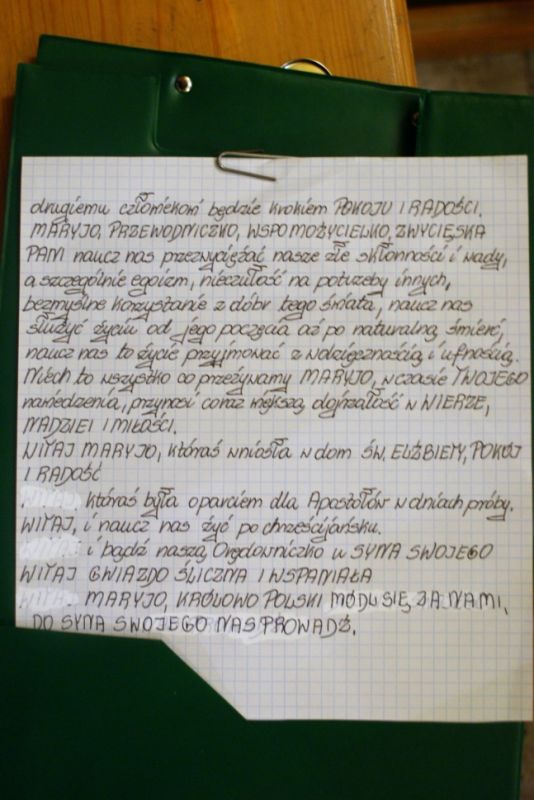 drugiemu człowiekowi będzie krokiem POKOJU I RADOŚCI.
MARYJO, PRZEWODNICZKO, WSPOMOŻYCIELKO, ZWYCIĘSKA
PANI naucz nas przezwyciężać nasze złe skłonności i wady,
a szczególnie egoizm, nieczułość na potrzeby innych,
bezmyślne korzystanie z dóbr tego świata, naucz nas
służyć życiu od jego poczęcia aż po naturalną śmierć,
naucz nas to życie przyjmować z wdzięcznością i ufnością.
Niech to wszystko co przeżywamy MARYJO, w czasie TWOJEGO
nawiedzenia, przynosi coraz większą dojrzałość w WIERZE,
NADZIEI I MIŁOŚCI.
WITAJ MARYJO, któraś wniosła w dom ŚW. ELŻBIETY, POKÓJ
I RADOŚĆ
któraś była oparciem dla Apostołów w dniach próby.
WITAJ, i naucz nas żyć po chrześcijańsku.
i bądź naszą Orędowniczko u SYNA SWOJEGO
WITAJ GWIAZDO ŚLICZNA I WSPANIAŁA
WITAJ MARYJO, KRÓLOWO POLSKI MÓDL SIĘ ZA NAMI,
DO SYNA SWOJEGO NAS PROWADŹ.